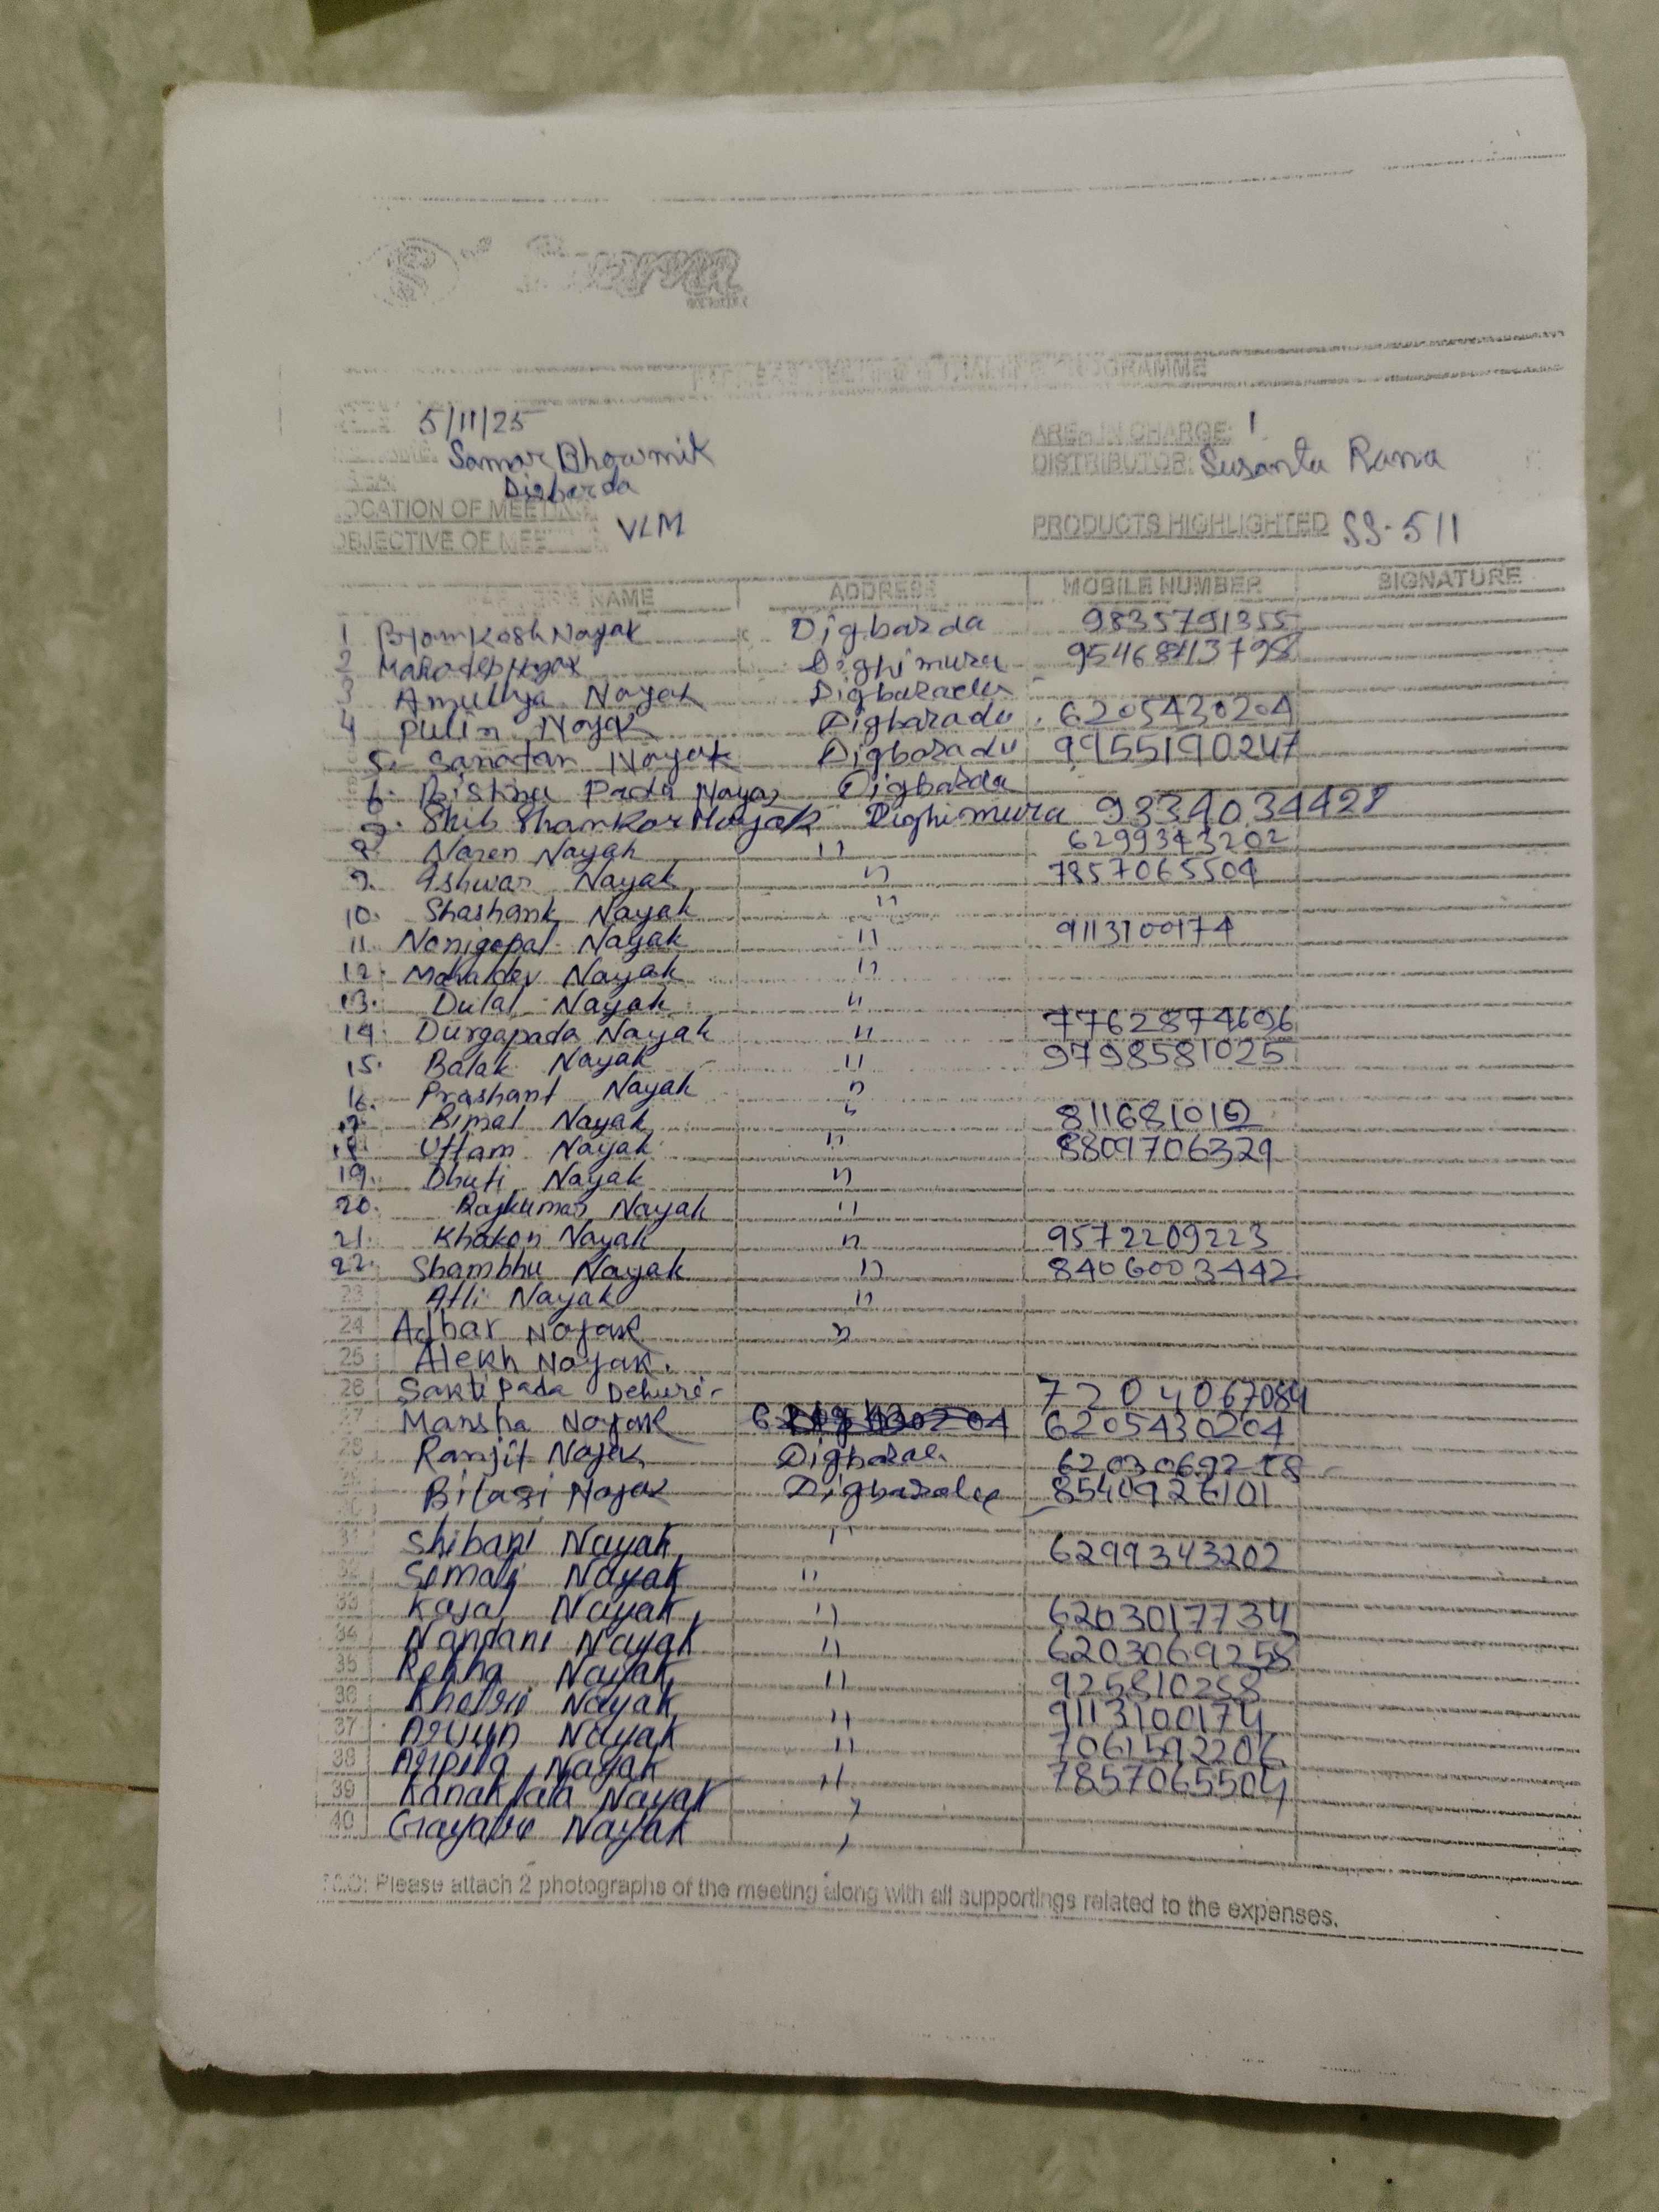 PROGRAMME
5/11/25
AREA IN CHARGE: 1
Samar Bhowmik
DISTRIBUTOR: Susanta Rana
Digbarda
LOCATION OF MEETING
OBJECTIVE OF MEETING VLM
PRODUCTS HIGHLIGHTED SS-511
NAME ADDRESS MOBILE NUMBER SIGNATURE
1 Byomkosh Nayak Digbarda 9835791355
2 Mahadeb Nayak Dighimura
3 Amullya Nayak Digbarada
4 Pulin Nayak Digbarada 6205430204
5. Sanatan Nayak Digbarada 9955190247
6. Bishnu Pada Nayak Digbarda
7. Shib Shankar Nayak Dighimura 9334034428
8. Naren Nayak " 6299343202
9. Ishwar Nayak " 7857065504
10. Shashank Nayak "
11. Nonigopal Nayak " 9113100174
12. Mahadev Nayak "
13. Dulal Nayak "
14. Durgapada Nayak " 7762874696
15. Balak Nayak " 9798581025
16. Prashant Nayak "
17. Bimal Nayak " 811681012
18 Uttam Nayak " 8809706329
19. Dhuti Nayak "
20. Rajkumar Nayak "
21. Khokon Nayak " 9572209223
22. Shambhu Nayak " 8406003442
23 Atli Nayak "
24 Adhar Nayak "
25 Alekh Nayak.
26 Saktipada Dehuri 7204067084
27 Mansha Nayak 6205430204
28 Ranjit Nayak 6203069218
29 Bilasi Nayak 8540926101
31 Shibani Nayak " 6299343202
32 Somali Nayak "
33 Kajal Nayak " 6203017734
34 Nandani Nayak " 6203069258
35 Rekha Nayak " 925810258
36 Nayak " 9113100174
37 Arjun Nayak " 7061592206
38 Nayak " 7857065504
39 Kanaklata Nayak "
40 Nayak "
N.O: Please attach 2 photographs of the meeting along with all supportings related to the expenses.